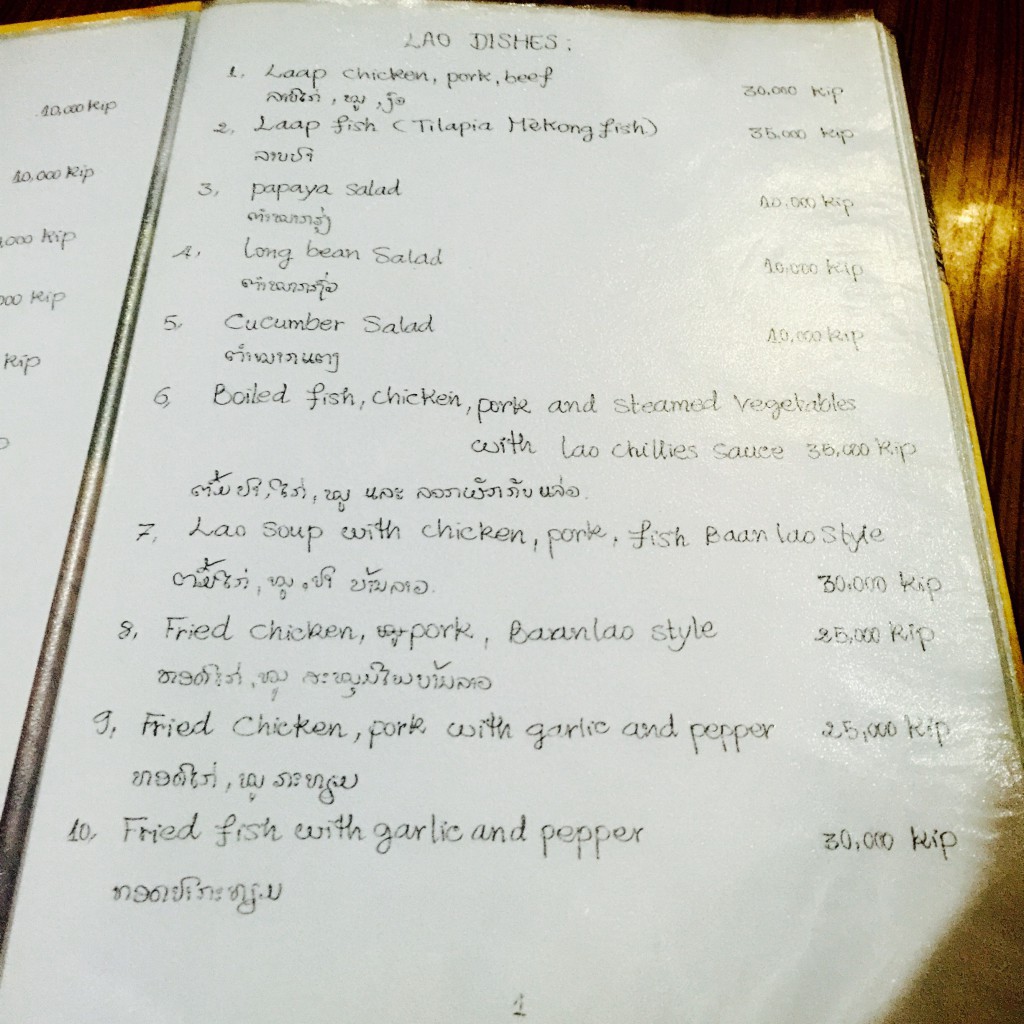 LAO DISHES:
10,000 Kip
10,000 Kip
,000 Kip
000 Kip
Kip
1. Laap chicken, pork, beef 30,000 Kip
ລາບໄກ່, ໝູ, ງົວ
2, Laap fish (Tilapia Mekong fish) 35,000 Kip
ລາບປາ
3, papaya salad 10,000 Kip
ຕໍາໝາກຮຸ່ງ
4, long bean Salad 10,000 Kip
ຕໍາໝາກຖົ່ວ
5, Cucumber Salad 10,000 Kip
ຕໍາໝາກແຕງ
6, Boiled fish, chicken, pork and steamed vegetables
with lao chillies sauce 35,000 Kip
ຕົ້ມປາ, ໄກ່, ໝູ ແລະ ລວກຜັກກັບແຈ່ວ.
7, Lao soup with chicken, pork, fish Baan lao Style
ຕົ້ມໄກ່, ໝູ, ປາ ບ້ານລາວ. 30,000 Kip
8, Fried chicken, pork, Baanlao style 25,000 Kip
ທອດໄກ່, ໝູ ສະໝຸນໄພບ້ານລາວ
9, Fried Chicken, pork with garlic and pepper 25,000 Kip
ທອດໄກ່, ໝູ ກະທຽມ
10, Fried fish with garlic and pepper 30,000 Kip
ທອດປາກະທຽມ
1